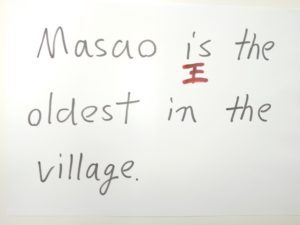 Masao is the
王
oldest in the
village.